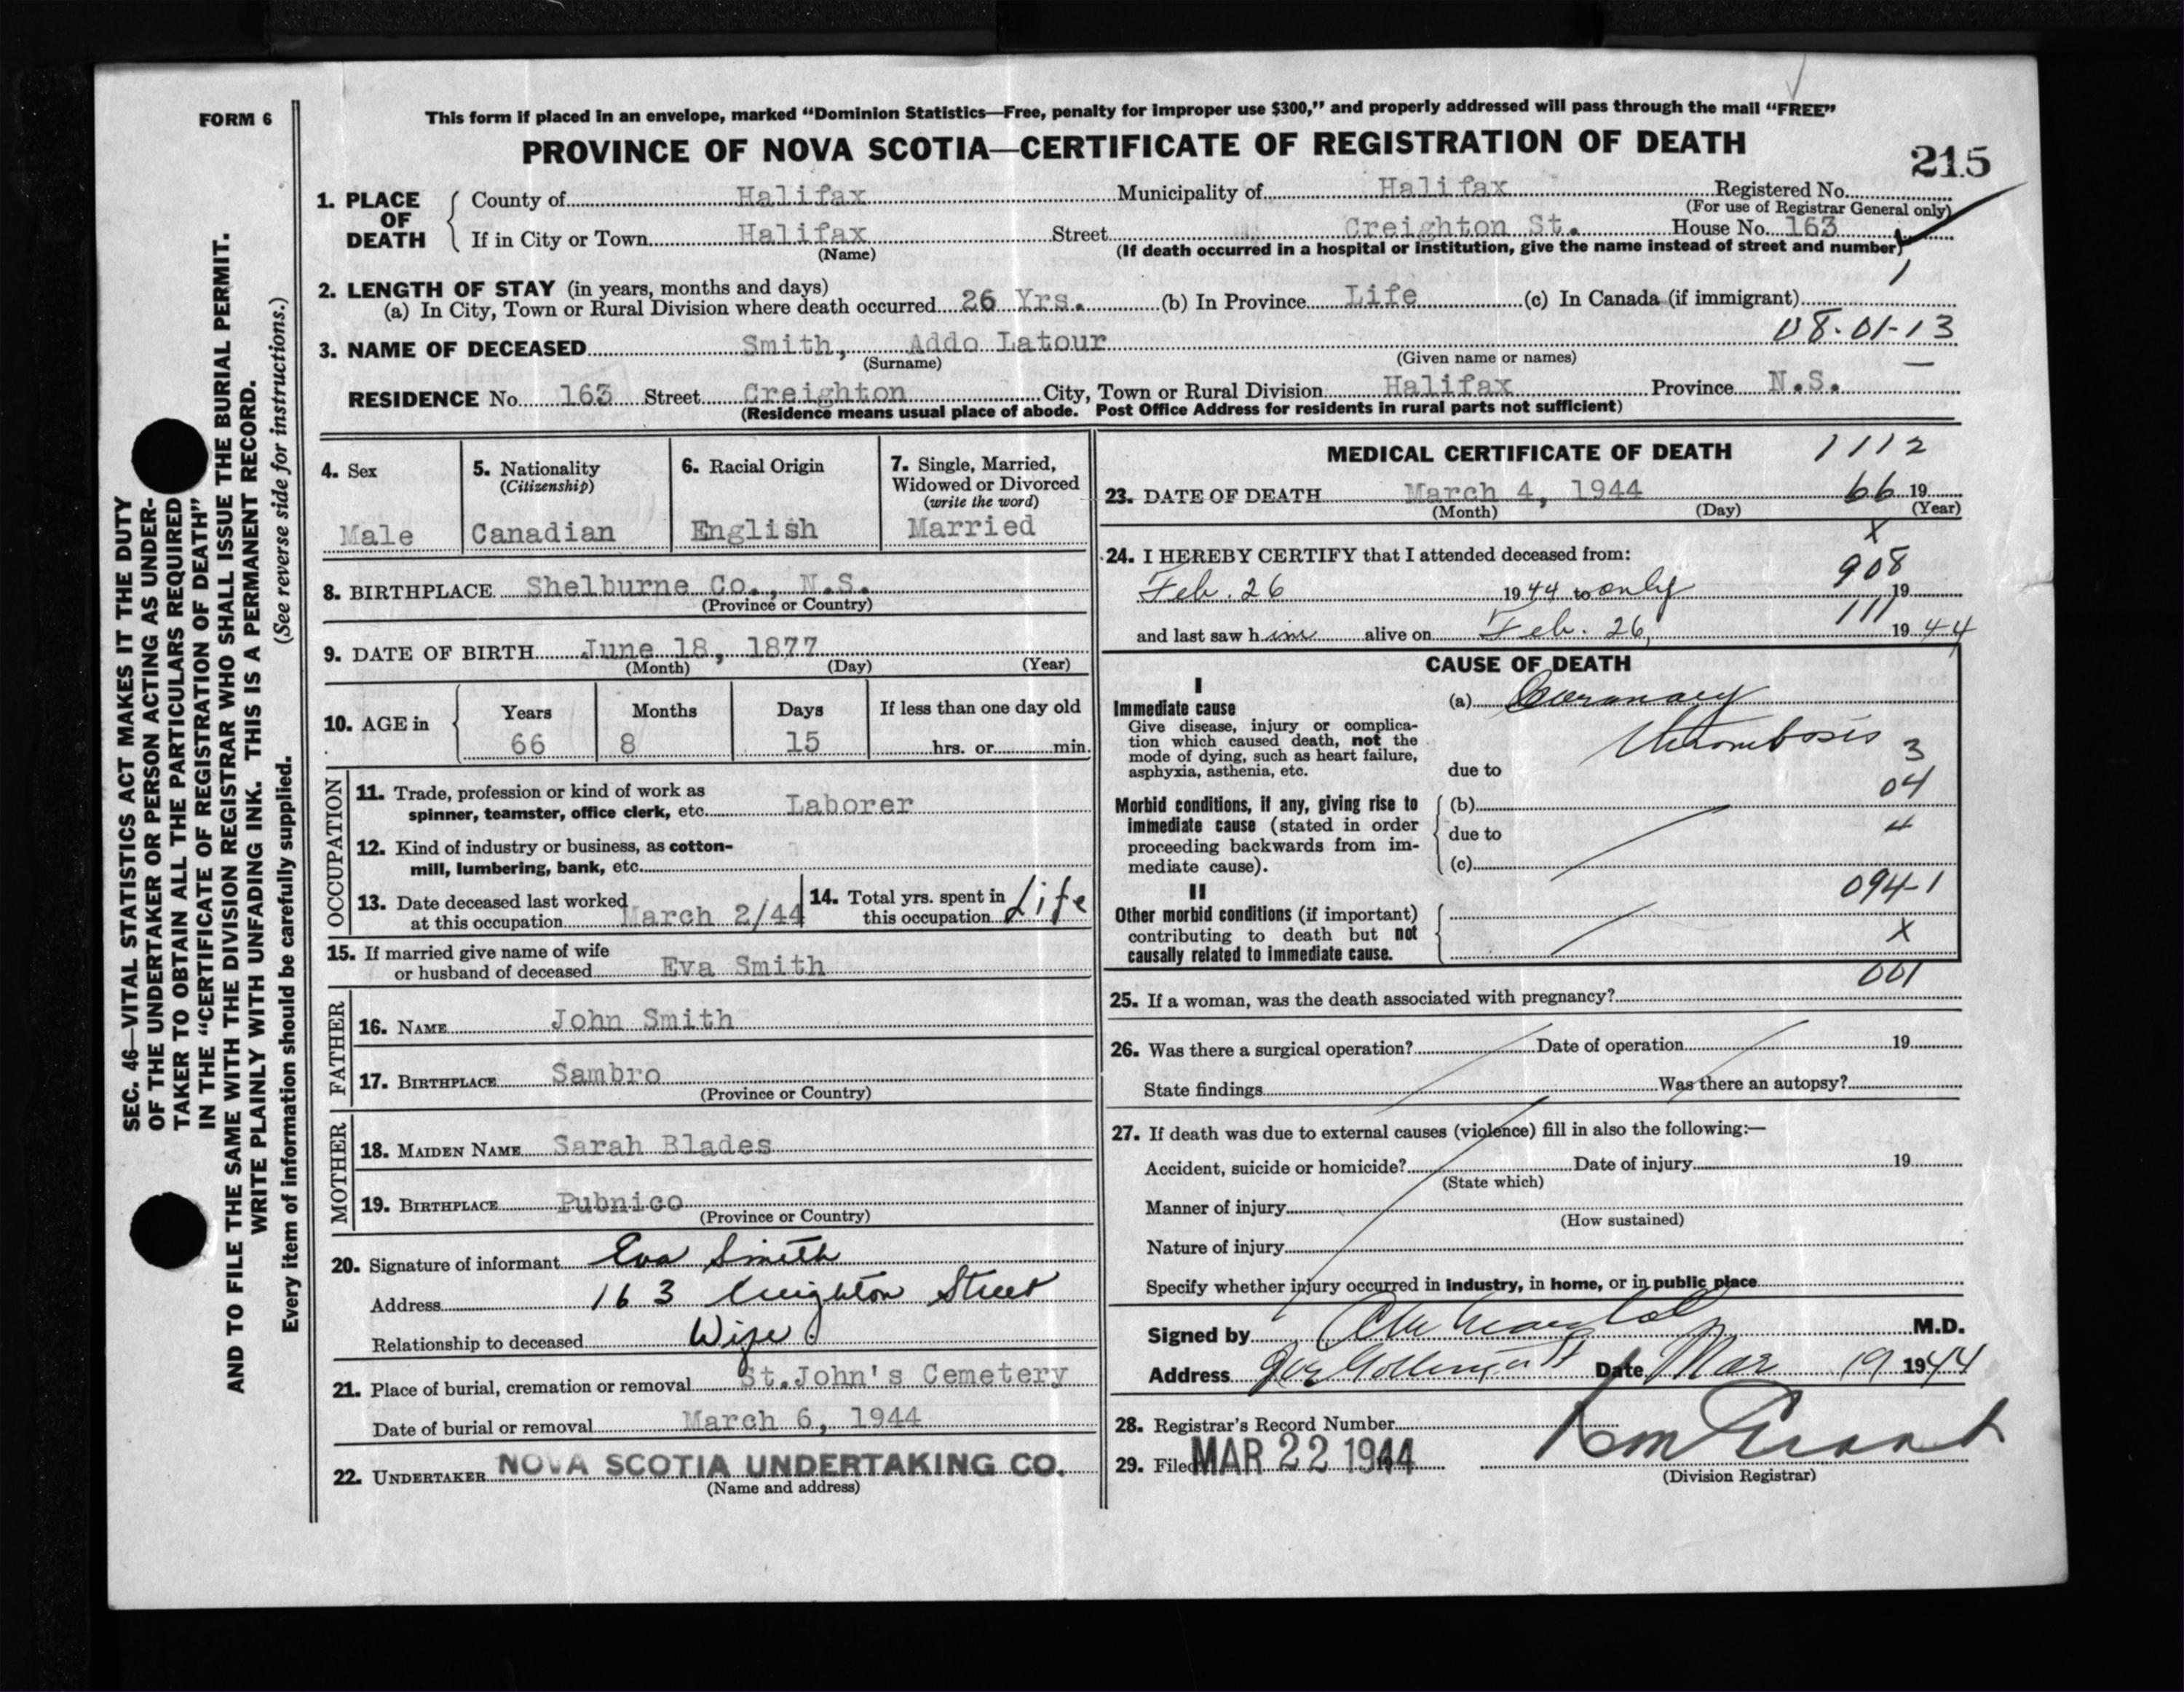 FORM 6
This form if placed in an envelope, marked “Dominion Statistics—Free, penalty for improper use $300,” and properly addressed will pass through the mail “FREE”
PROVINCE OF NOVA SCOTIA—CERTIFICATE OF REGISTRATION OF DEATH
215
1. PLACE OF DEATH
County of Halifax Municipality of Halifax Registered No.
(For use of Registrar General only)
If in City or Town Halifax Street Creighton St. House No. 163
(Name) (If death occurred in a hospital or institution, give the name instead of street and number)
1
2. LENGTH OF STAY (in years, months and days)
(a) In City, Town or Rural Division where death occurred 26 Yrs. (b) In Province Life (c) In Canada (if immigrant)
08-01-13
3. NAME OF DECEASED Smith, Addo Latour
(Surname) (Given name or names)
RESIDENCE No. 163 Street Creighton City, Town or Rural Division Halifax Province N.S.
(Residence means usual place of abode. Post Office Address for residents in rural parts not sufficient)
4. Sex
Male
5. Nationality
(Citizenship)
Canadian
6. Racial Origin
English
7. Single, Married,
Widowed or Divorced
(write the word)
Married
8. BIRTHPLACE Shelburne Co., N.S.
(Province or Country)
9. DATE OF BIRTH June 18, 1877
(Month) (Day) (Year)
10. AGE in
Years Months Days If less than one day old
66 8 15 hrs. or min.
OCCUPATION
11. Trade, profession or kind of work as
spinner, teamster, office clerk, etc. Laborer
12. Kind of industry or business, as cotton-
mill, lumbering, bank, etc.
13. Date deceased last worked
at this occupation March 2/44
14. Total yrs. spent in
this occupation Life
15. If married give name of wife
or husband of deceased Eva Smith
FATHER
16. NAME John Smith
17. BIRTHPLACE Sambro
(Province or Country)
MOTHER
18. MAIDEN NAME Sarah Blades
19. BIRTHPLACE Pubnico
(Province or Country)
20. Signature of informant Eva Smith
Address 163 Creighton Street
Relationship to deceased Wife.
21. Place of burial, cremation or removal St.John's Cemetery
Date of burial or removal March 6, 1944
22. UNDERTAKER NOVA SCOTIA UNDERTAKING CO.
(Name and address)
MEDICAL CERTIFICATE OF DEATH 1112
23. DATE OF DEATH March 4, 1944 66 19
(Month) (Day) (Year)
X
24. I HEREBY CERTIFY that I attended deceased from:
908
Feb. 26 1944 to only 19
111
and last saw him alive on Feb. 26, 1944
CAUSE OF DEATH
I
Immediate cause
Give disease, injury or complica-
tion which caused death, not the
mode of dying, such as heart failure,
asphyxia, asthenia, etc.
(a) Coronary
thrombosis
3
due to
04
Morbid conditions, if any, giving rise to
immediate cause (stated in order
proceeding backwards from im-
mediate cause).
(b)
due to
4
(c)
094-1
II
Other morbid conditions (if important)
contributing to death but not
causally related to immediate cause.
X
001
25. If a woman, was the death associated with pregnancy?
26. Was there a surgical operation? Date of operation 19
State findings Was there an autopsy?
27. If death was due to external causes (violence) fill in also the following:—
Accident, suicide or homicide? Date of injury 19
(State which)
Manner of injury
(How sustained)
Nature of injury
Specify whether injury occurred in industry, in home, or in public place
Signed by M.D.
Address Date Mar 19 1944
28. Registrar's Record Number
29. Filed MAR 22 1944
(Division Registrar)
SEC. 46—VITAL STATISTICS ACT MAKES IT THE DUTY
OF THE UNDERTAKER OR PERSON ACTING AS UNDER-
TAKER TO OBTAIN ALL THE PARTICULARS REQUIRED
IN THE “CERTIFICATE OF REGISTRATION OF DEATH”
AND TO FILE THE SAME WITH THE DIVISION REGISTRAR WHO SHALL ISSUE THE BURIAL PERMIT.
WRITE PLAINLY WITH UNFADING INK. THIS IS A PERMANENT RECORD.
Every item of information should be carefully supplied. (See reverse side for instructions.)